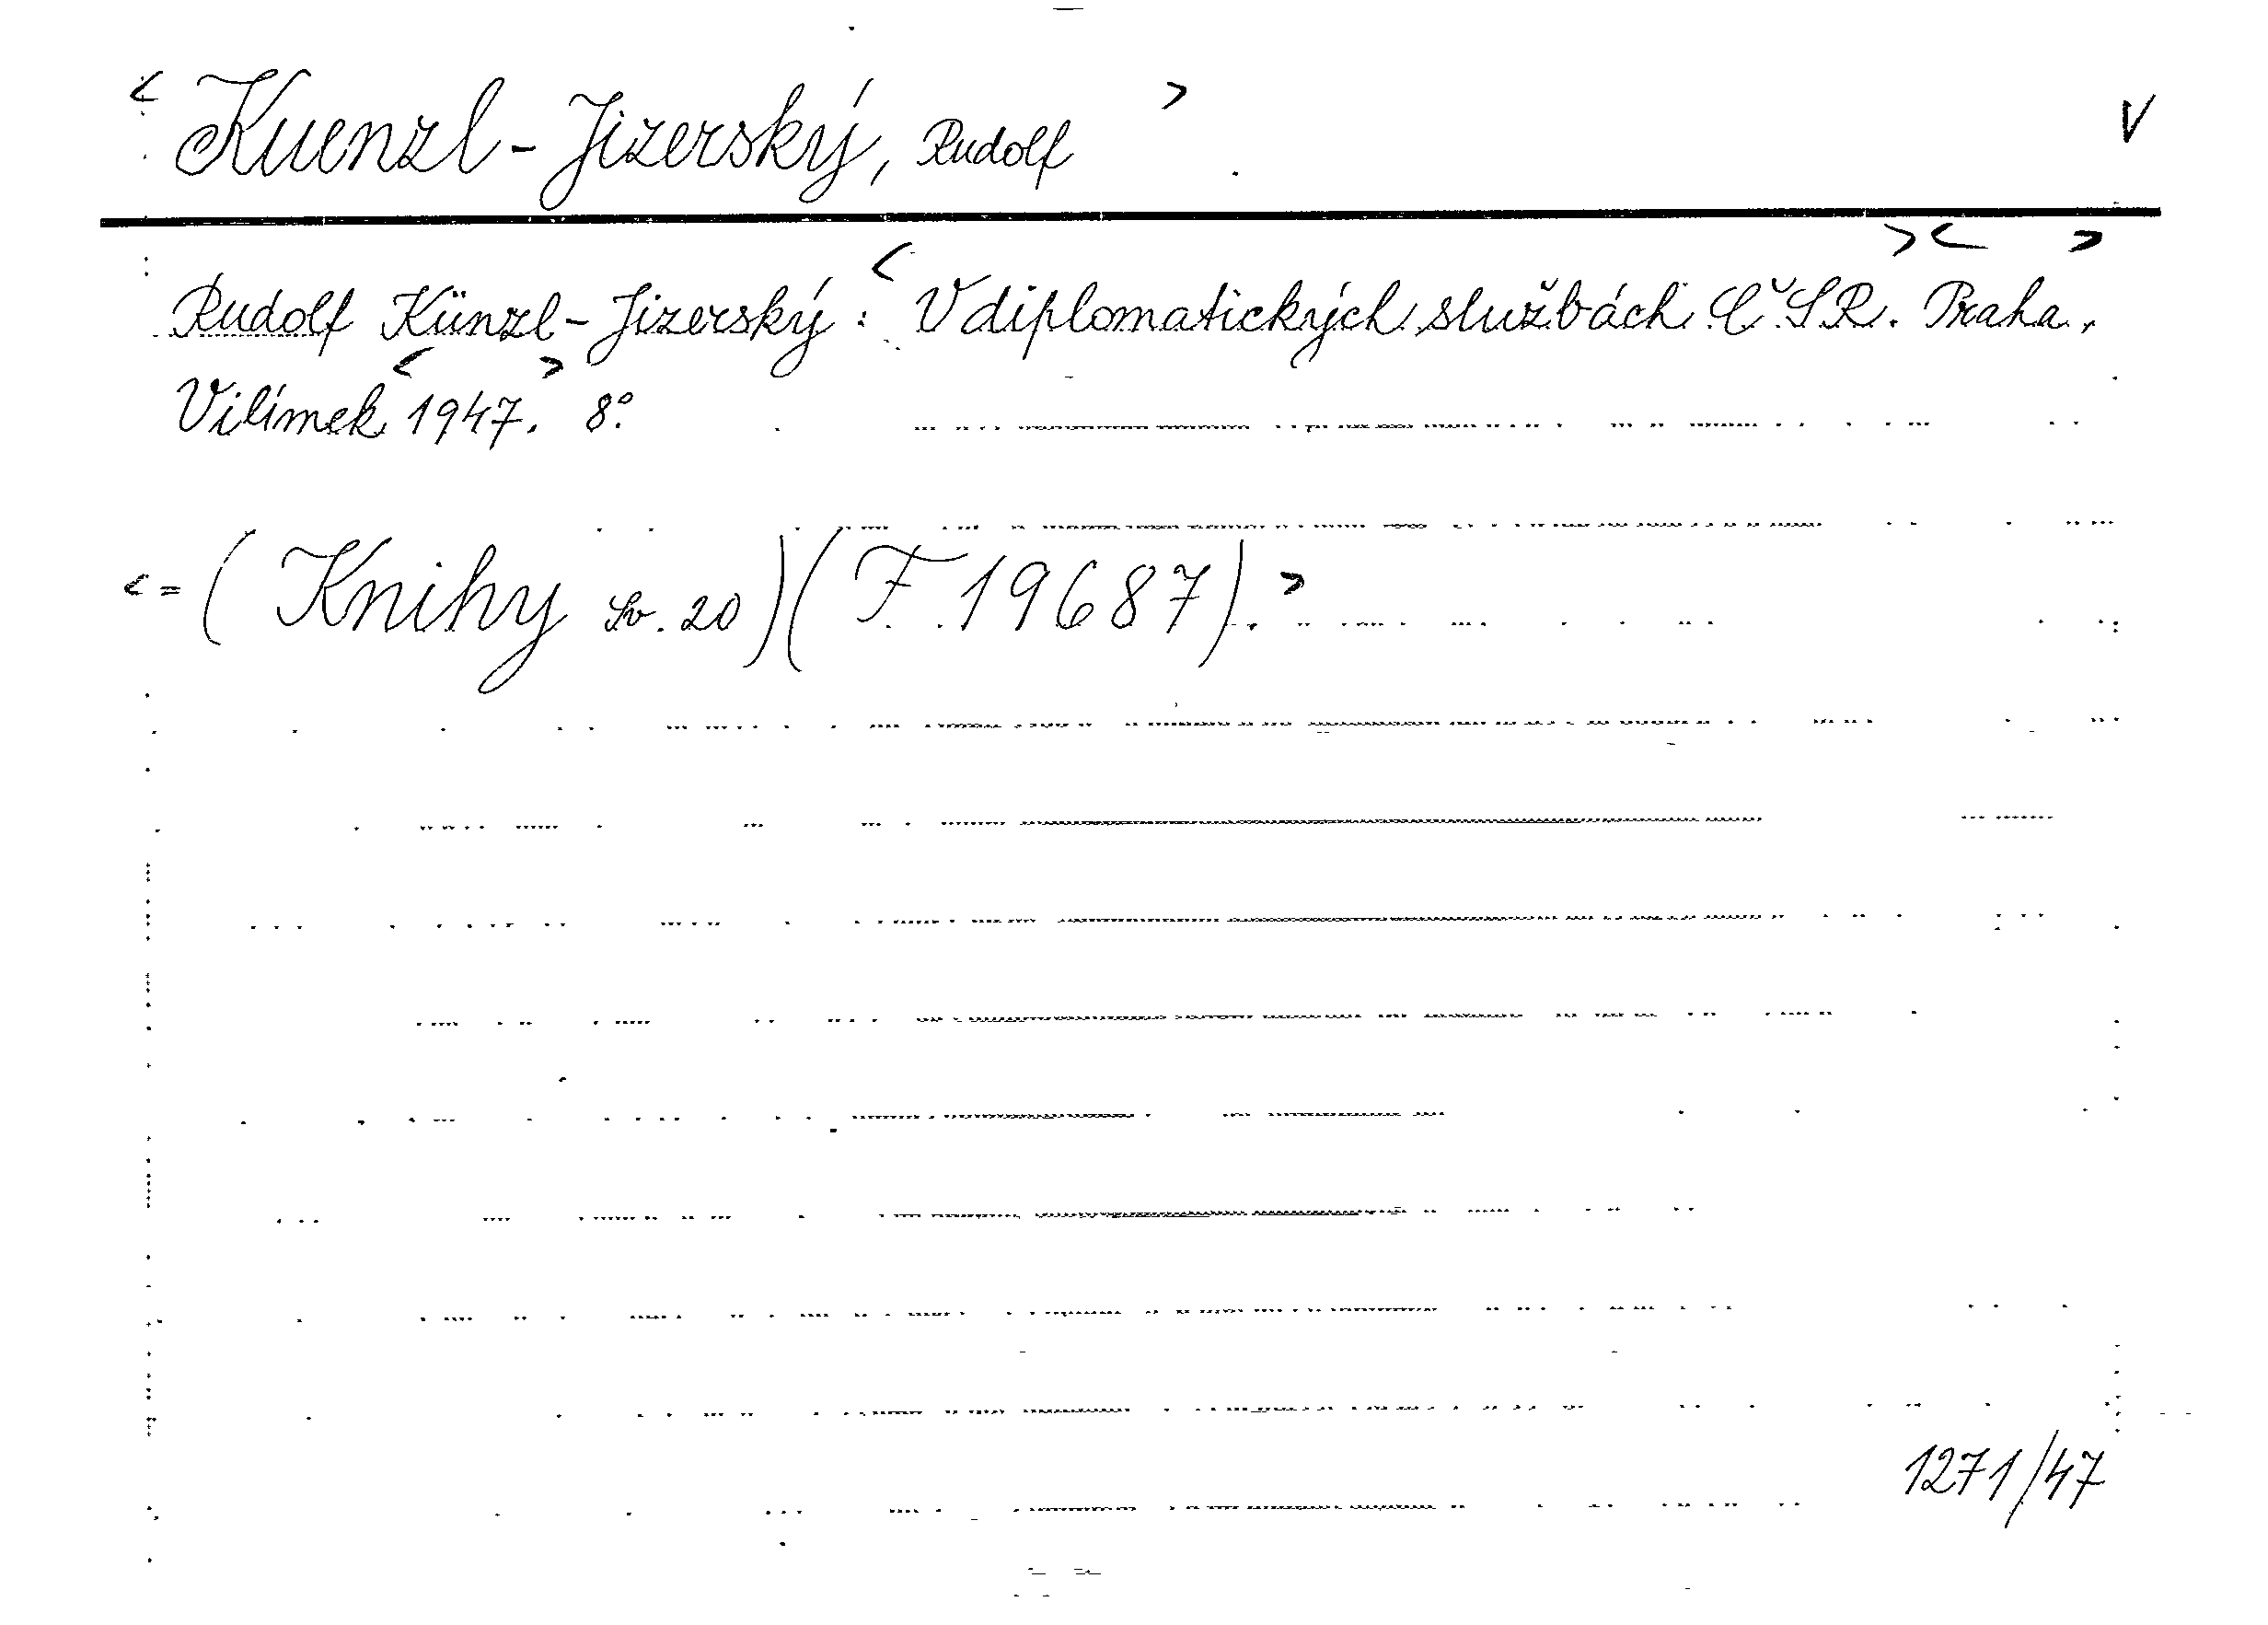 < Kuenzl-Jizerský, Rudolf > V
Rudolf Künzl-Jizerský: < V diplomatických službách ČSR. > < Praha, >
Vilímek < 1947. > 8°.
< = (Knihy Sv. 20) (F. 19687). >
1271/47